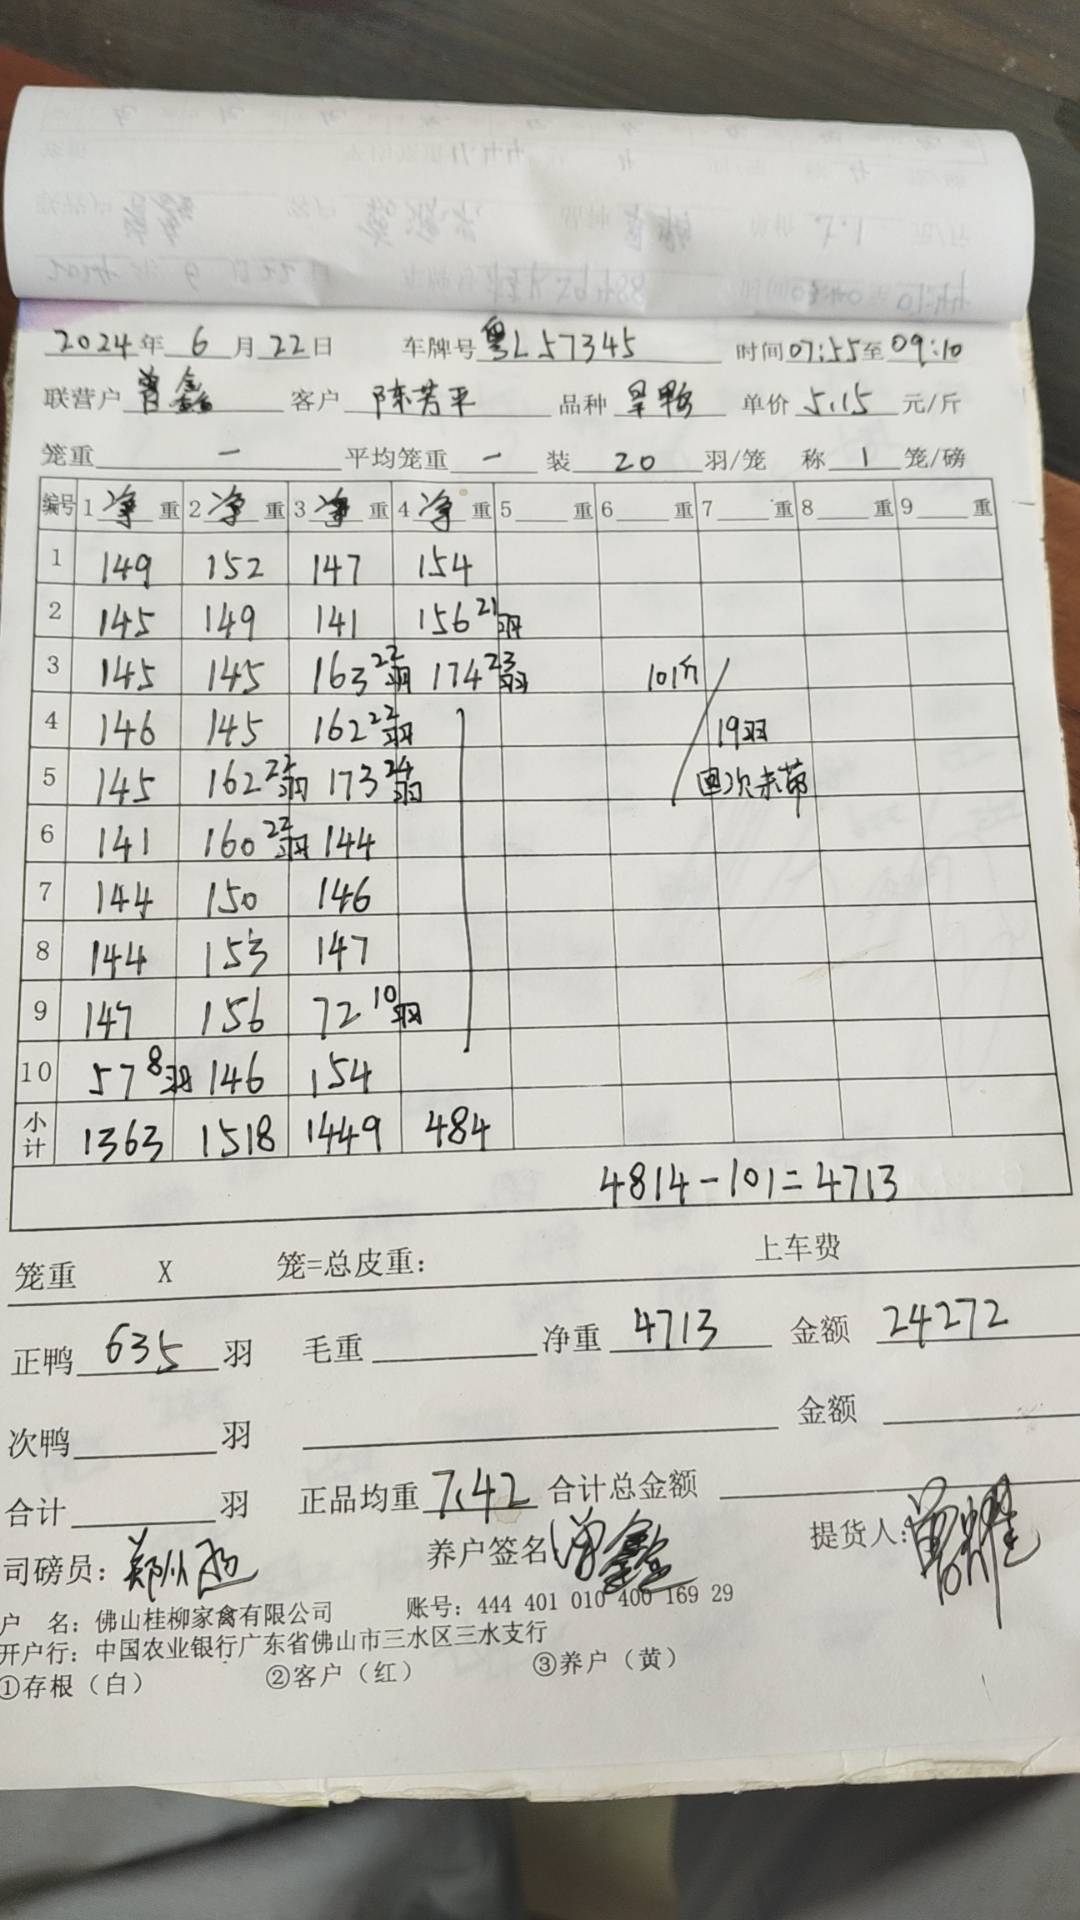 2024年 6 月 22日 车牌号 粤L57345 时间 07:55至 09:10
联营户 曾鑫 客户 陈芳平 品种 旱鸭 单价 5.15 元/斤
笼重 一 平均笼重 一 装 20 羽/笼 称 1 笼/磅
编号 1 净 重 2 净 重 3 净 重 4 净 重 5 重 6 重 7 重 8 重 9 重
1 149 152 147 154
2 145 149 141 156 21羽
3 145 145 163 22羽 174 23羽 101斤
4 146 145 162 22羽 19羽
5 145 162 22羽 173 24羽 次未带
6 141 160 22羽 144
7 144 150 146
8 144 153 147
9 147 156 72 10羽
10 57 8羽 146 154
小计 1363 1518 1449 484
4814-101=4713
笼重 X 笼=总皮重: 上车费
正鸭 635 羽 毛重 净重 4713 金额 24272
次鸭 羽 金额
合计 羽 正品均重 7.42 合计总金额
司磅员: 养户签名 曾鑫 提货人:
户 名: 佛山桂柳家禽有限公司 账号: 444 401 010 400 169 29
开户行: 中国农业银行广东省佛山市三水区三水支行
①存根（白） ②客户（红） ③养户（黄）